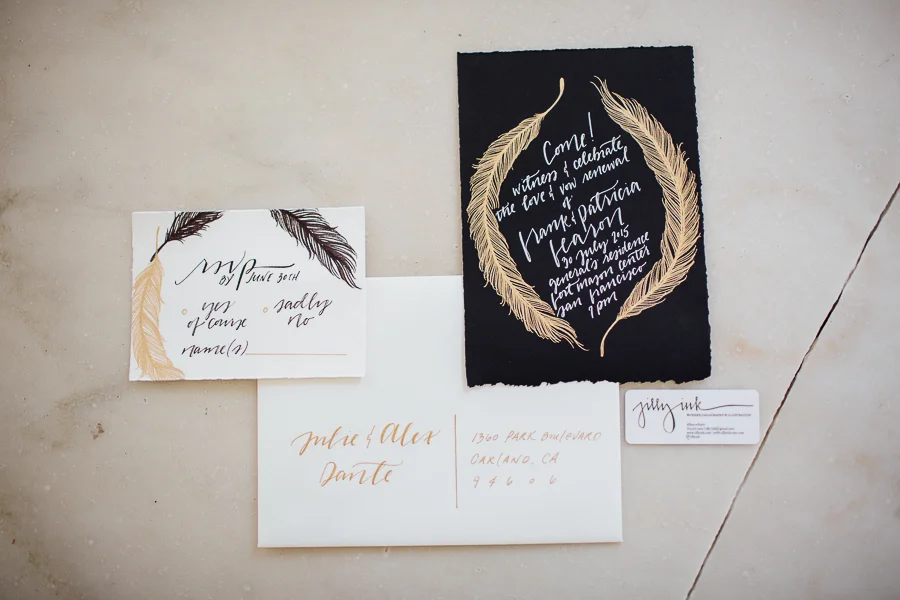 Come!
witness & celebrate
the love & vow renewal
of
Frank & Patricia
Season
30 July 2015
general's residence
fort mason center
san francisco
7 pm
rsvp
BY JUNE 30TH
yes
of course
sadly
no
name(s)
Julie & Alex
Dante
1360 PARK BOULEVARD
OAKLAND, CA
94606
jilly ink